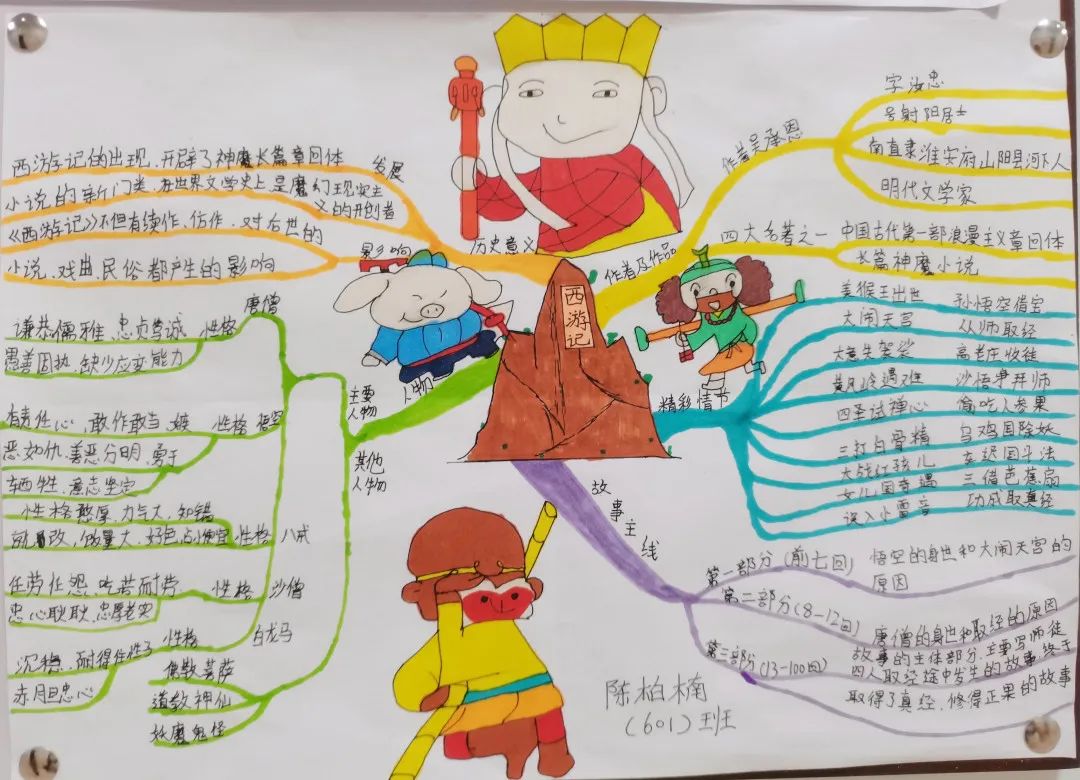 西游记
历史意义
发展
西游记的出现，开辟了神魔长篇章回体
小说的新门类，在世界文学史上是魔幻现实主
义的开创者
影响
《西游记》不但有续作、仿作，对后世的
小说、戏曲民俗都产生的影响
作者及作品
作者吴承恩
字汝忠
号射阳居士
南直隶淮安府山阳县河下人
明代文学家
四大名著之一
中国古代第一部浪漫主义章回体
长篇神魔小说
精彩情节
美猴王出世
孙悟空借宝
大闹天宫
从师取经
失袈裟
高老庄收徒
黄风岭遇难
沙悟净拜师
四圣试禅心
偷吃人参果
三打白骨精
乌鸡国除妖
大战红孩儿
女儿国奇遇
三借芭蕉扇
误入小雷音
功成取真经
故事主线
第一部分（前七回）
悟空的身世和大闹天宫的
原因
第二部分（8-12回）
唐僧的身世和取经的原因
第三部分（13-100回）
故事的主体部分，主要写师徒
四人取经途中发生的故事终于
取得了真经，修得正果的故事
人物
主要
人物
唐僧
性格
谦恭儒雅、忠贞
愚善固执、缺少应变能力
悟空
性格
敢作敢当、嫉
恶如仇、善恶分明、勇于
牺牲、意志坚定
八戒
性格
性格憨厚、力气大、知错
改、饭量大、好色
沙僧
性格
任劳任怨、吃苦耐劳
忠心耿耿、忠厚老实
白龙马
性格
沉稳、耐得住性子
赤月旦忠心
其他
人物
佛教菩萨
道教神仙
妖魔鬼怪
陈柏楠
（601）班